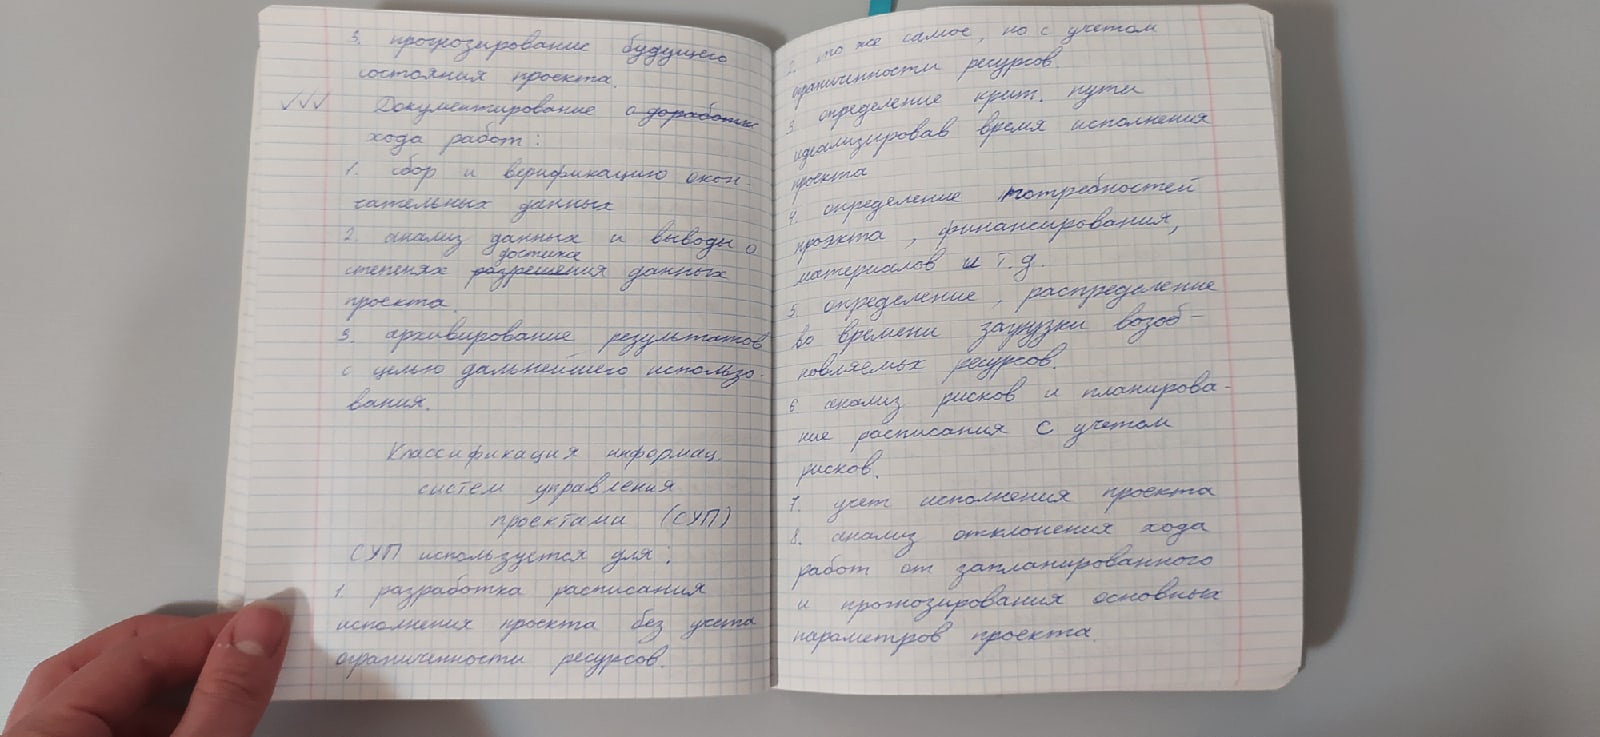 3. прогнозирование будущего
состояния проекта.
Документирование о доработке
хода работ:
1. сбор и верификацию окон-
чательных данных
2. анализ данных и выводы о
достиже
степенях разрешения данных
проекта.
3. архивирование результатов
с целью дальнейшего использо-
вания.
Классификация информац.
систем управления
проектами (СУП)
СУП используется для:
1. разработка расписания
исполнения проекта без учета
ограниченности ресурсов.
2. то же самое, но с учетом
ограниченности ресурсов.
3. определение крит. пути
идеализировав время исполнения
проекта
4. определение потребностей
проэкта, финансирования,
материалов и т.д.
5. определение, распределение
во времени загрузки возоб-
новляемых ресурсов.
6 анализ рисков и планирова-
ние расписания с учетом
рисков.
7. учет исполнения проекта
8. анализ отклонения хода
работ от запланированного
и прогнозирования основных
параметров проекта.